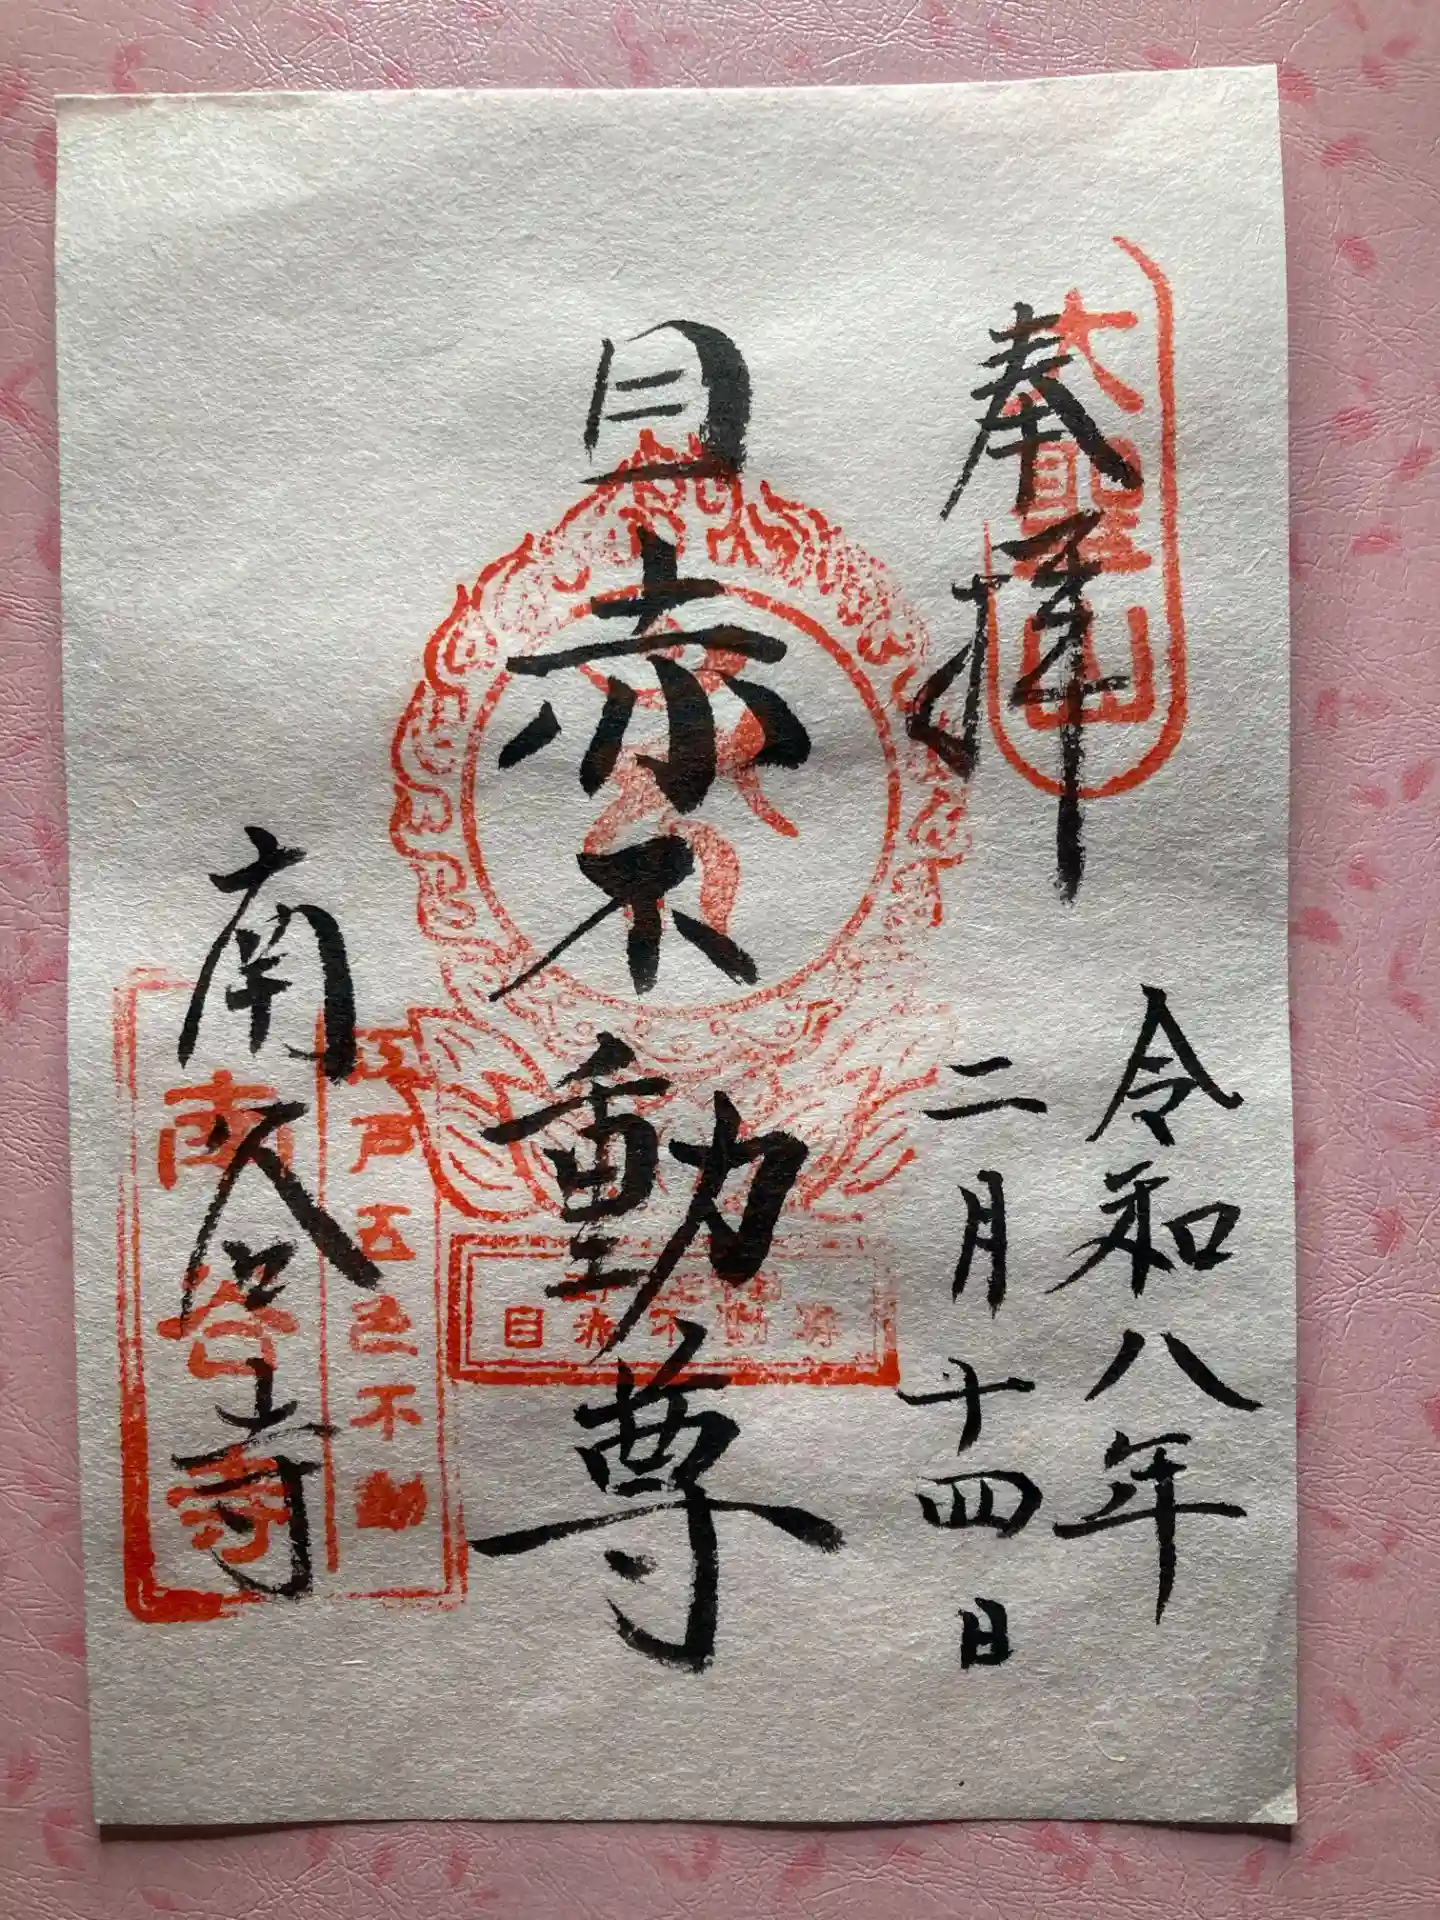 奉拝
大聖山
令和八年
二月十四日
目赤不動尊
江戸五色不動
南谷寺
南谷寺